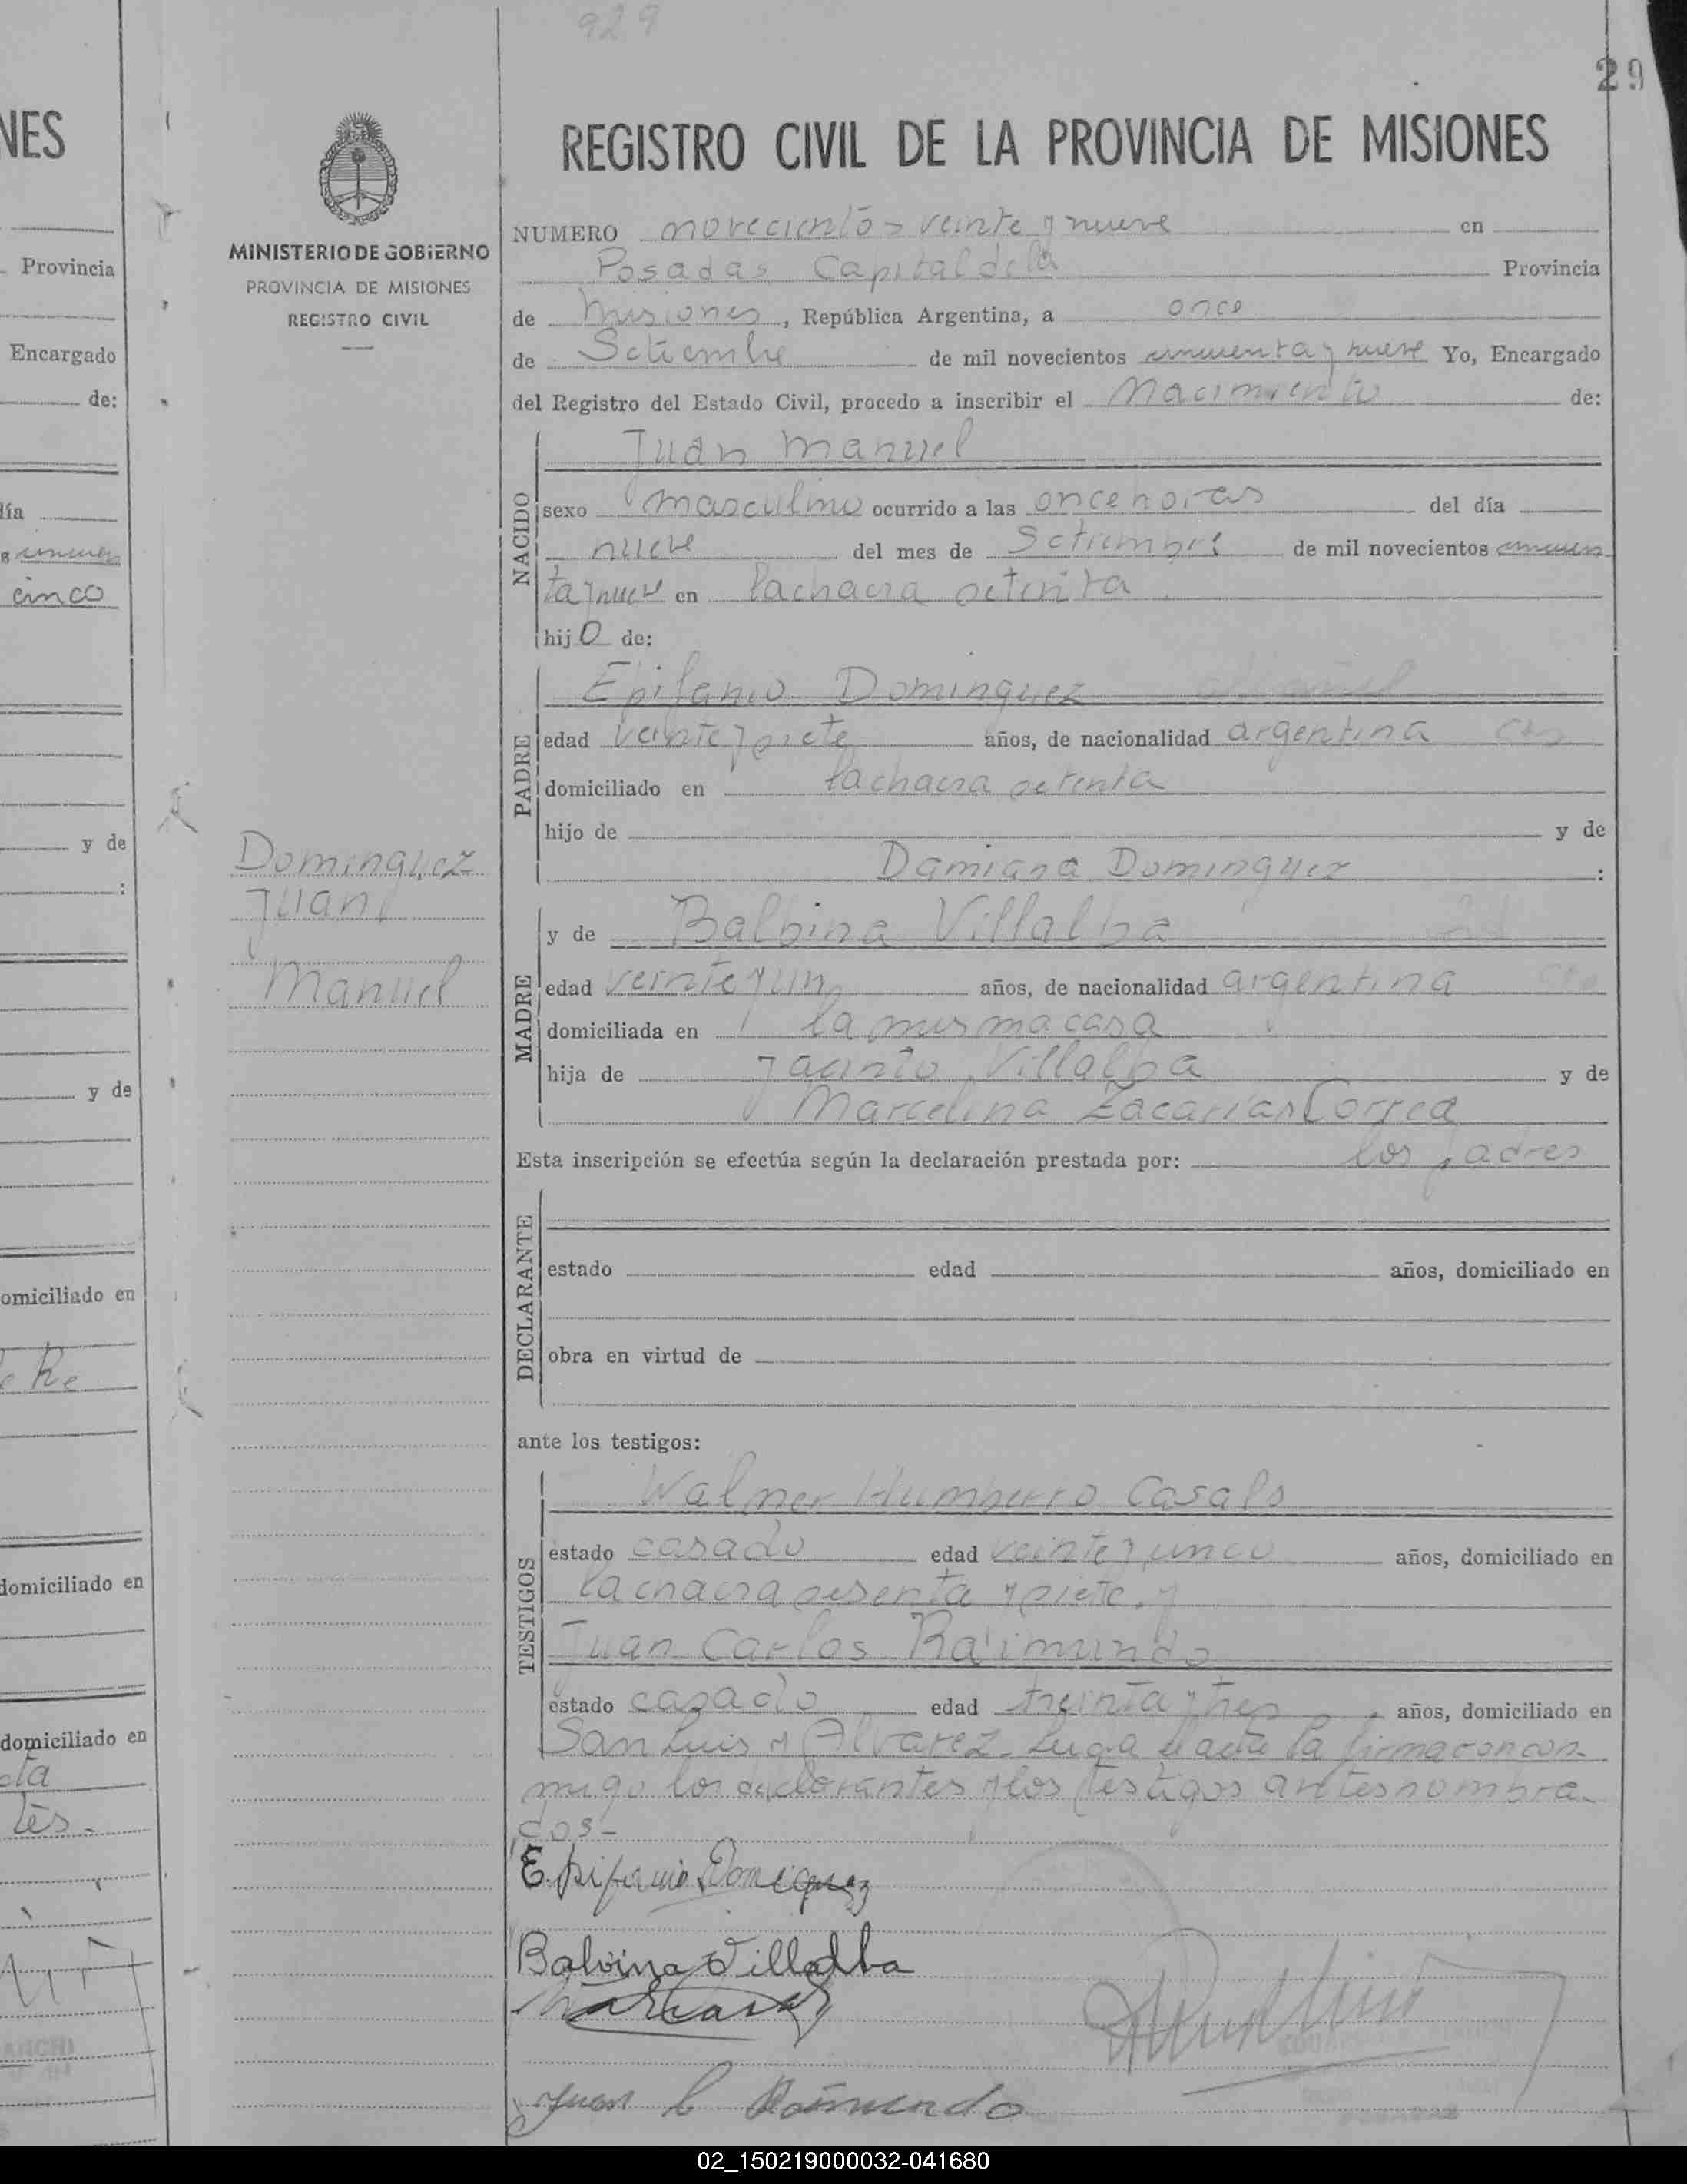 929
29
NES
REGISTRO CIVIL DE LA PROVINCIA DE MISIONES
MINISTERIO DE GOBIERNO
PROVINCIA DE MISIONES
REGISTRO CIVIL
NUMERO novecientos veinte y nueve en
Posadas Capital de la Provincia
de Misiones, República Argentina, a once
de Setiembre de mil novecientos cincuenta y nueve Yo, Encargado
del Registro del Estado Civil, procedo a inscribir el Nacimiento de:
NACIDO
Juan Manuel
sexo masculino ocurrido a las once horas del día
nueve del mes de Setiembre de mil novecientos cincuen
ta y nueve en la chacra setenta
hijo de:
PADRE
Epifanio Dominguez
edad veinte y siete años, de nacionalidad argentina
domiciliado en la chacra setenta
hijo de y de
Damiana Dominguez :
Dominguez
Juan
Manuel
MADRE
y de Balbina Villalba
edad veinte y un años, de nacionalidad argentina
domiciliada en la misma casa
hija de Jacinto Villalba y de
Marcelina Zacarias Correa
Esta inscripción se efectúa según la declaración prestada por: los padres
DECLARANTE
estado edad años, domiciliado en
obra en virtud de
ante los testigos:
TESTIGOS
Walmer Humberto Casals
estado casado edad veinte y cinco años, domiciliado en
la chacra sesenta y siete. y
Juan Carlos Raimundo
estado casado edad treinta y tres, años, domiciliado en
San Luis y Alvarez. Leida el acta la firman con con
migo los declarantes y los testigos antes nombra
dos-
Epifanio Domiquez
Balvina Villalba
Juan C Raimundo
POSADAS
Provincia
Encargado
de:
día
cinco
y de
:
y de
omiciliado en
de Re
domiciliado en
domiciliado en
cta
tes.
02_150219000032-041680